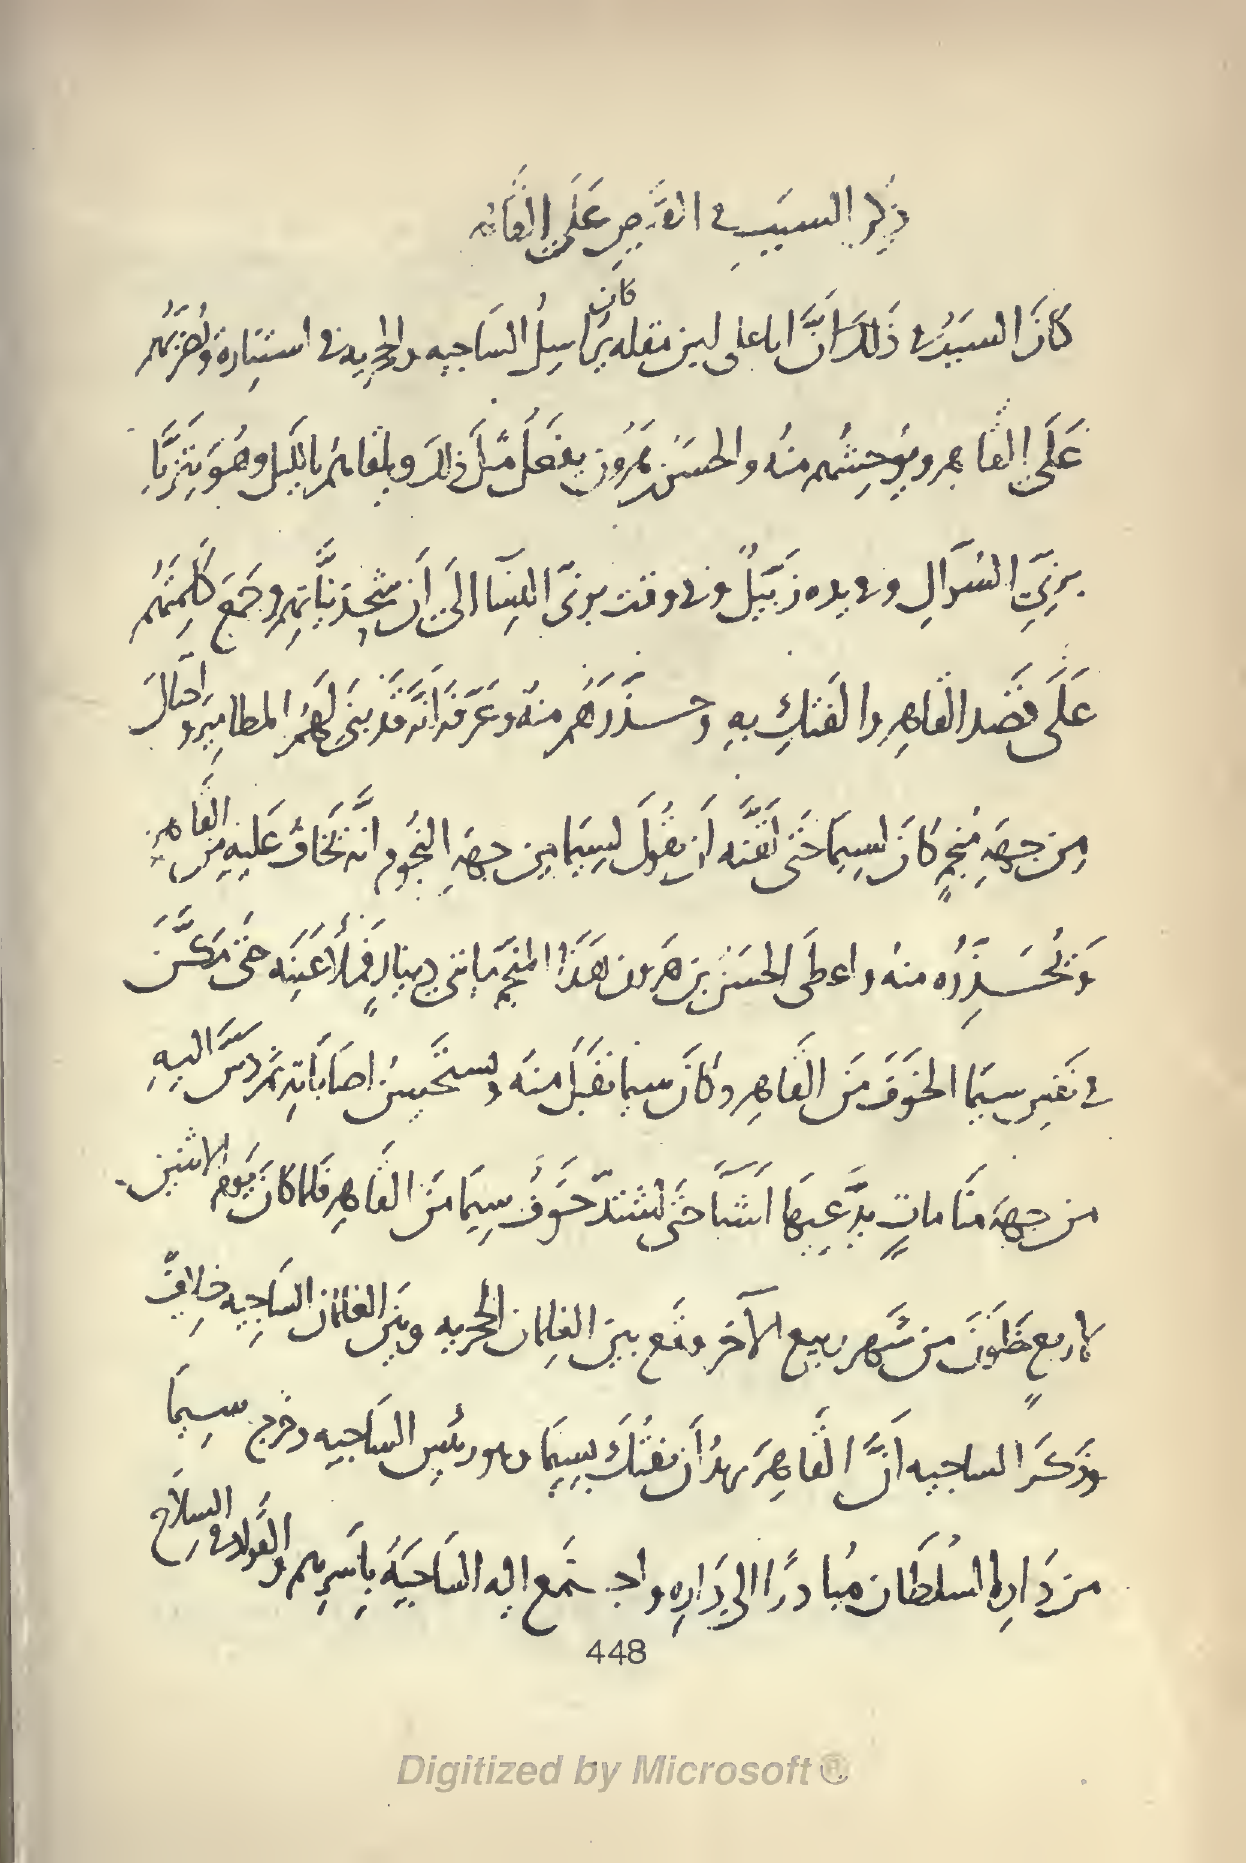 ذِكر السببِ في القبضِ عَلَى القاهر
كانَ السبَبُ في ذَلكَ انَّ ابا علي بن مقله كان يُرَاسِلُ السَاجيه والحجريه في استِتَاره ويُضَرِّيهُم
عَلَى القاهِر ويوُحِشُهم منهُ والحسَن بن هَرُون يفعَلُ مثلَ ذلكَ ويلقاهُم بالليل وهُوَ يَتَزيَّا
بزيِّ السُوَّالِ وفي يده زَبِّيلٌ وفي وقت بزيّ النِسَا الىَ أَن شحذ نيَّاتهم وجَمَعَ كَلِمتَهُم
عَلَى قصَد القَاهِرِ والفَتكِ بهِ وحَذَّرَهُم منهُ وعَرَّفهَم أَنَّه قَد بنىَ لَهمُ المطاميَر واحتَالَ
مِن جهَةِ مُنجمٍ كانَ لسيمَا حَتَّى لَقَّنَه أَن يقُولَ لسِيمَا مِن جهَةِ النجُوم انَّه يَخَافُ عَليهِ مِن القَاهر
وَيُحَذِّرُه منهُ واعطَى الحسَنُ بن هَرون هَذَا المنجّم مايتى دينارٍ فملأَ عَينَه حَتَّى تمكَّنَ
في نفسِ سيمَا الخوَفَ مَن القَاهِر وكانَ سيما يقبَلُ منهَ ويستَحسِنُ اصَابَاتِه ثمَّ دسَّ اليهِ
من جهَة منَاماتٍ يدَّعِيهَا اشيَا حَتَّى اشتدَّ خَوَفُ سِيمَا مَن القَاهِرِ فلما كانَ يَومُ الاثنين
لاربعٍ خَلَونَ من شَهر ربيع الآخر وقَع بين الغلمان الحجريه وبَين الغلمان السَاجِيه خِلافٌ
وَذَكَرَ الساجيه أَنَّ القَاهِرَ يريدُ أَن يفتُكَ بسِيمَا وهو رئيس السَاجيه وخرج سيمَا
من دَار السُلطَان مُبَادرًا الى دَارِه واجتمَع اليه السَاجيَةُ بِاَسرِهم والقُوَّاد في السِلاَح
448
Digitized by Microsoft ®